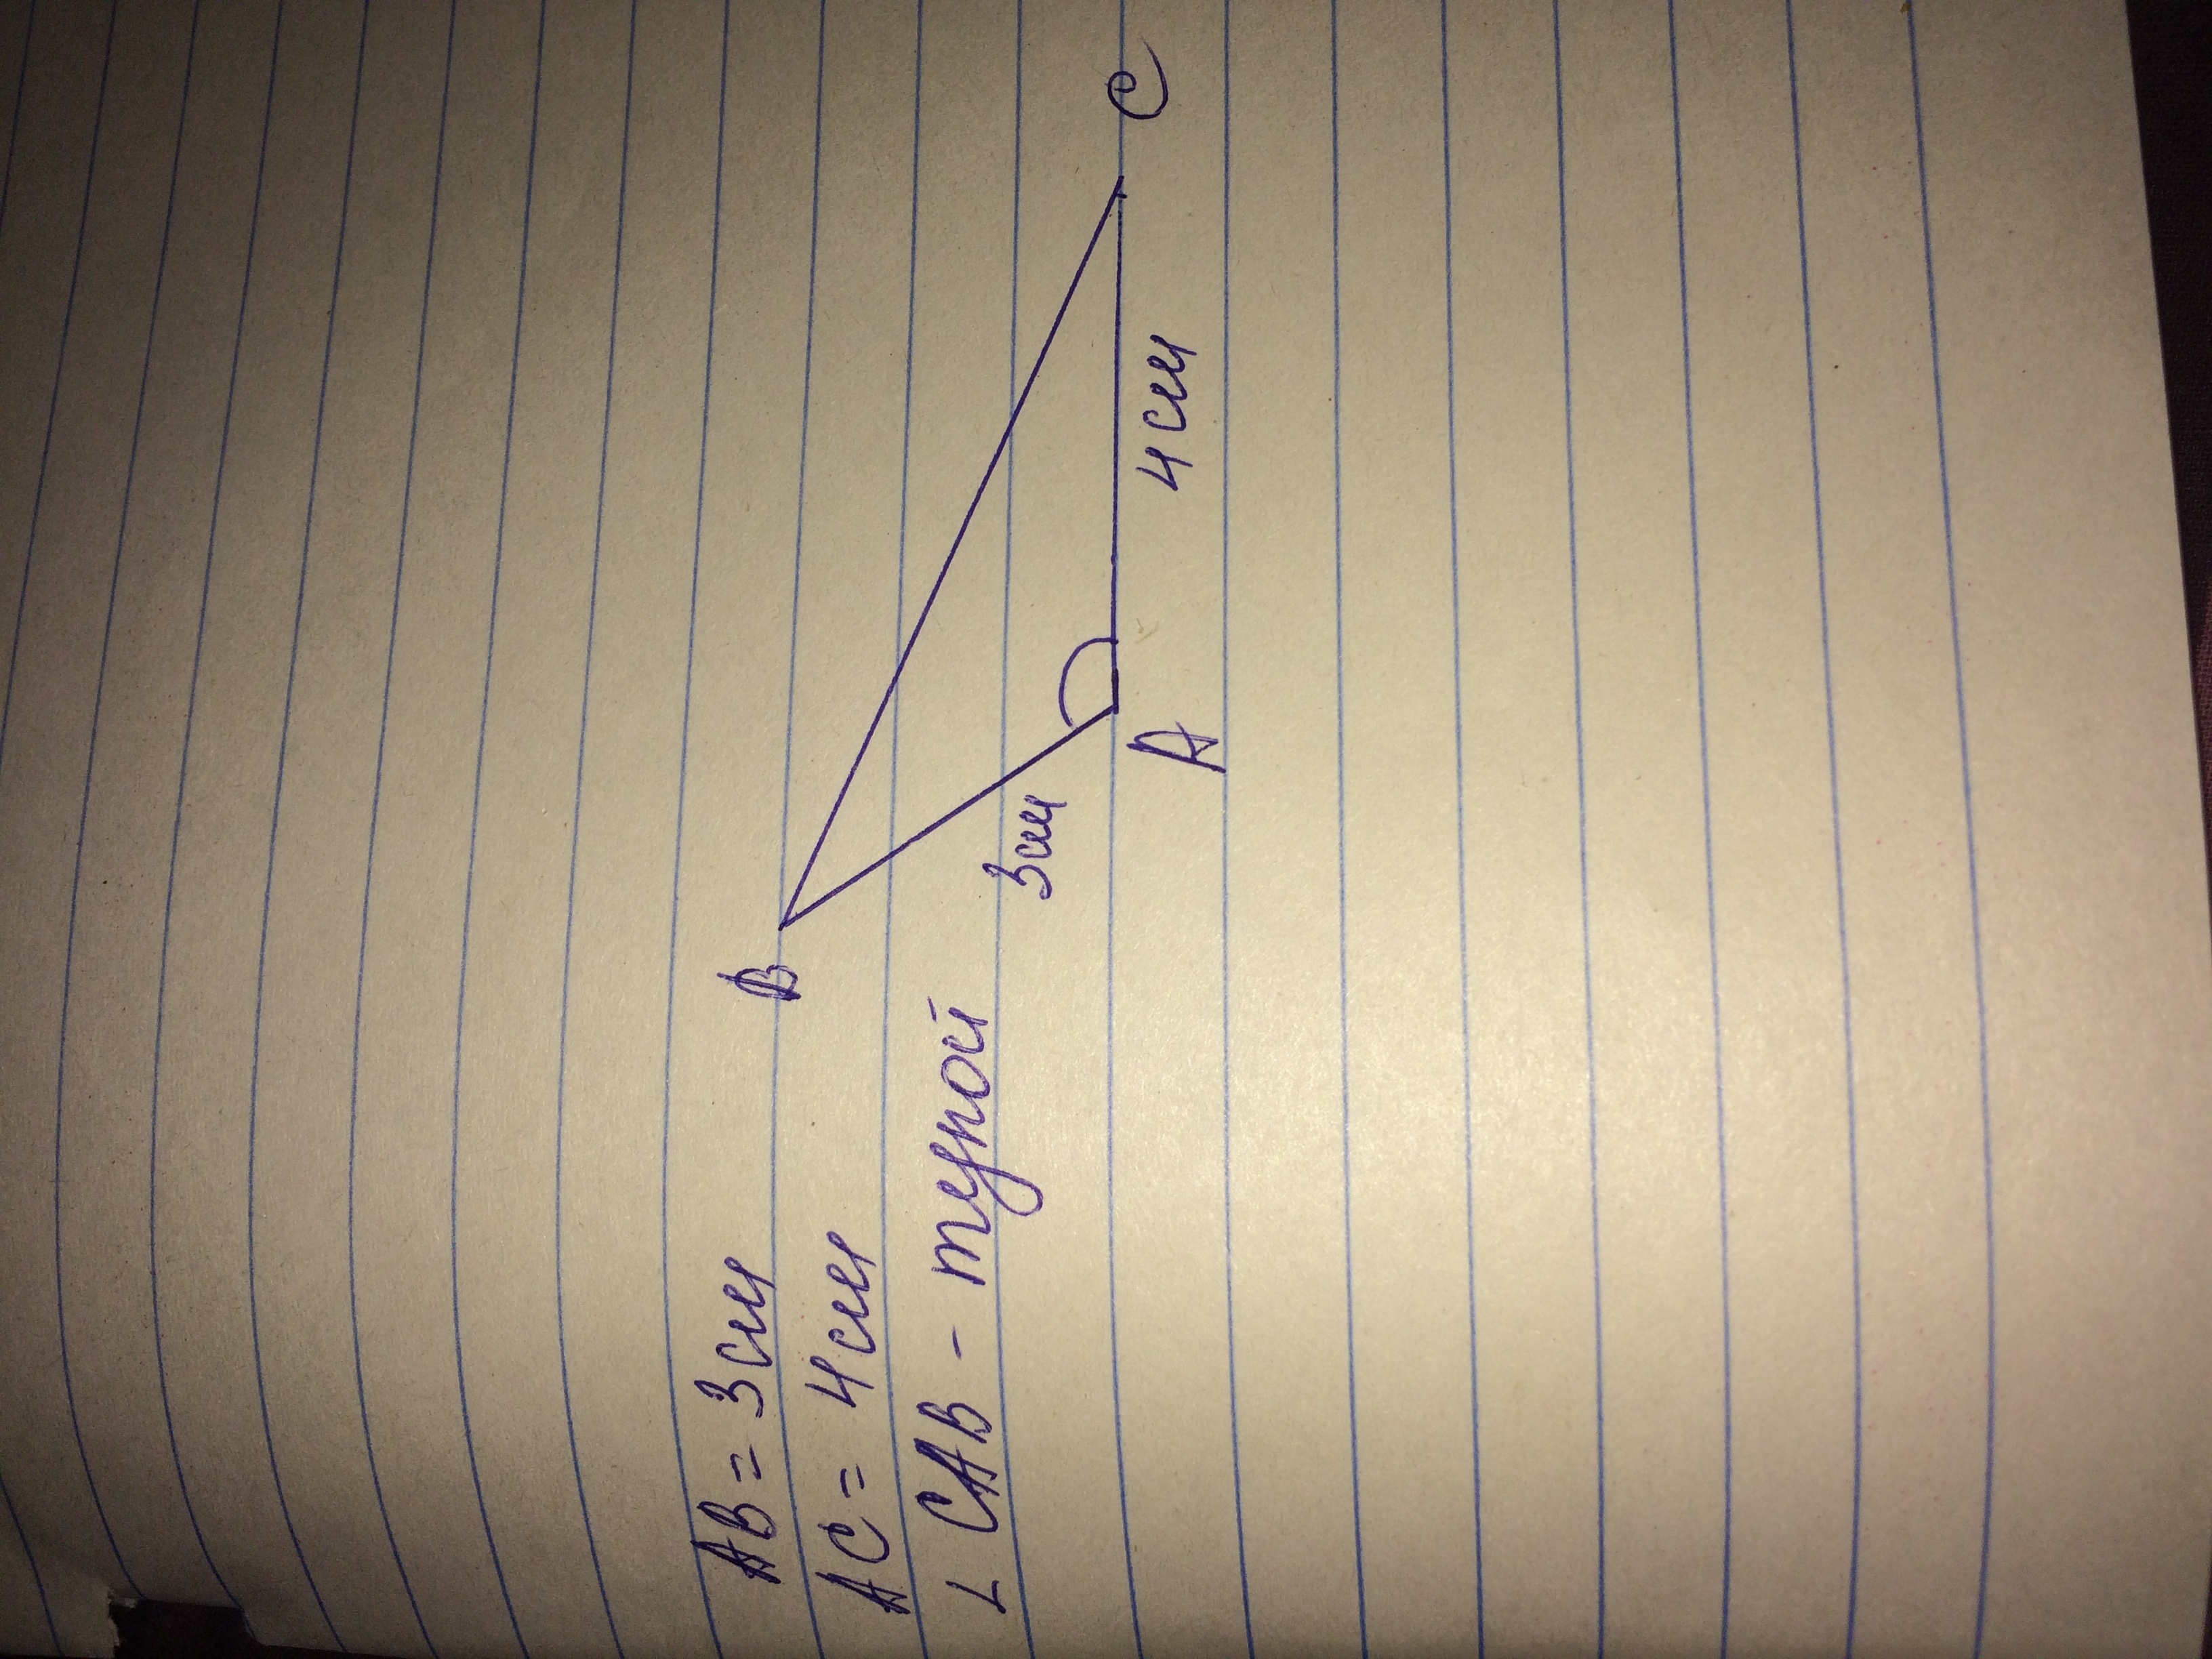 AB = 3см
AC = 4см
∠ CAB - тупой
B
3см
A
4см
C